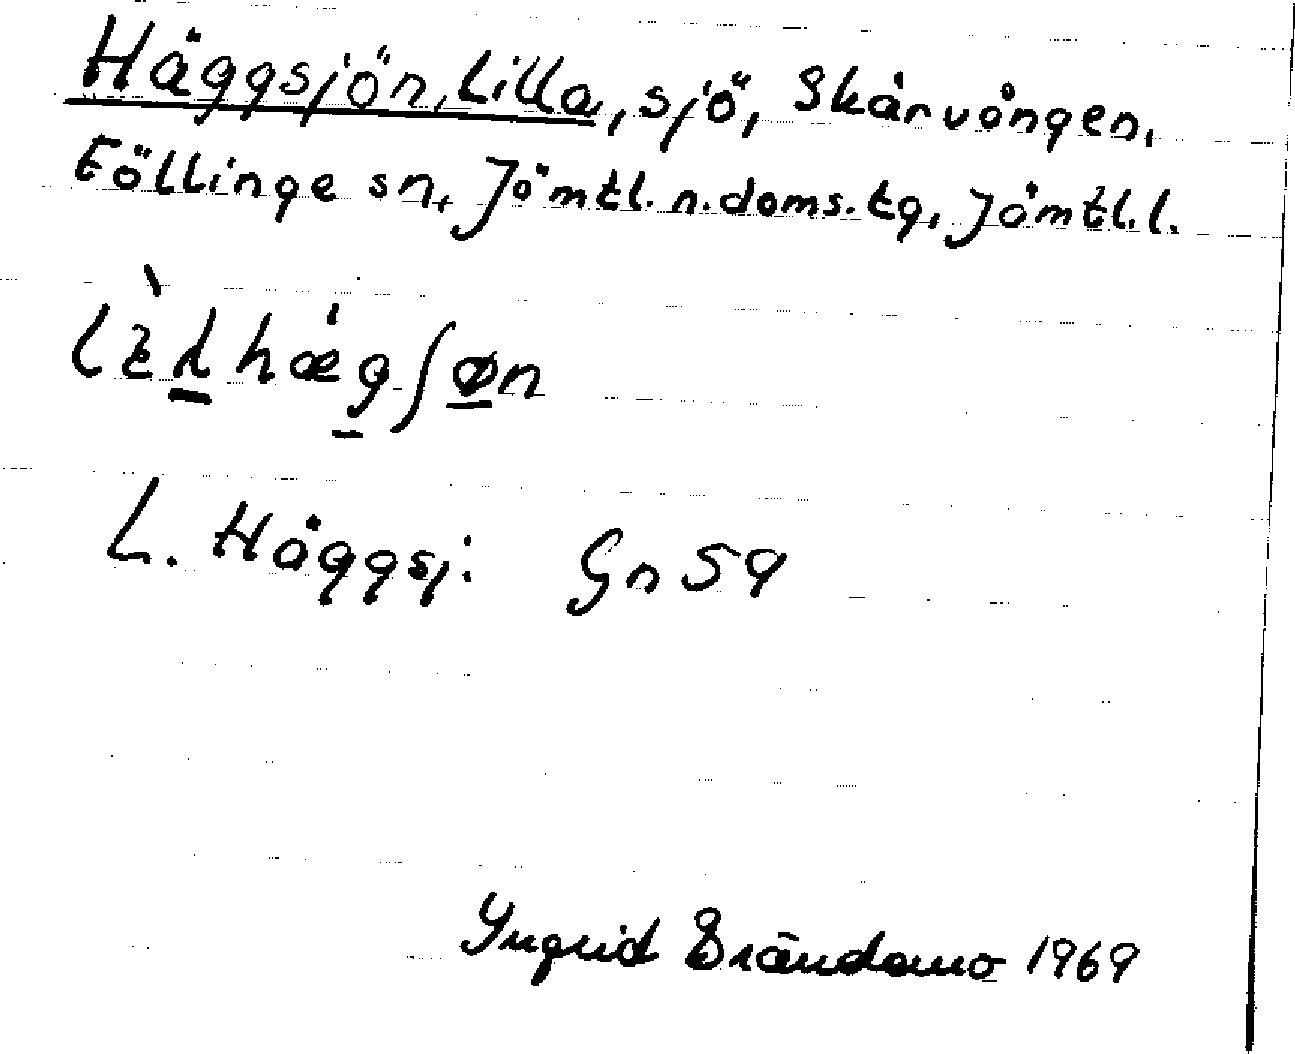 Häggsjön, Lilla, sjö, Skärvången,
Föllinge sn, Jämtl. n. doms. tg, Jämtl. l.
L. Häggsj: Gn 59
Ingrid Brändamo 1969